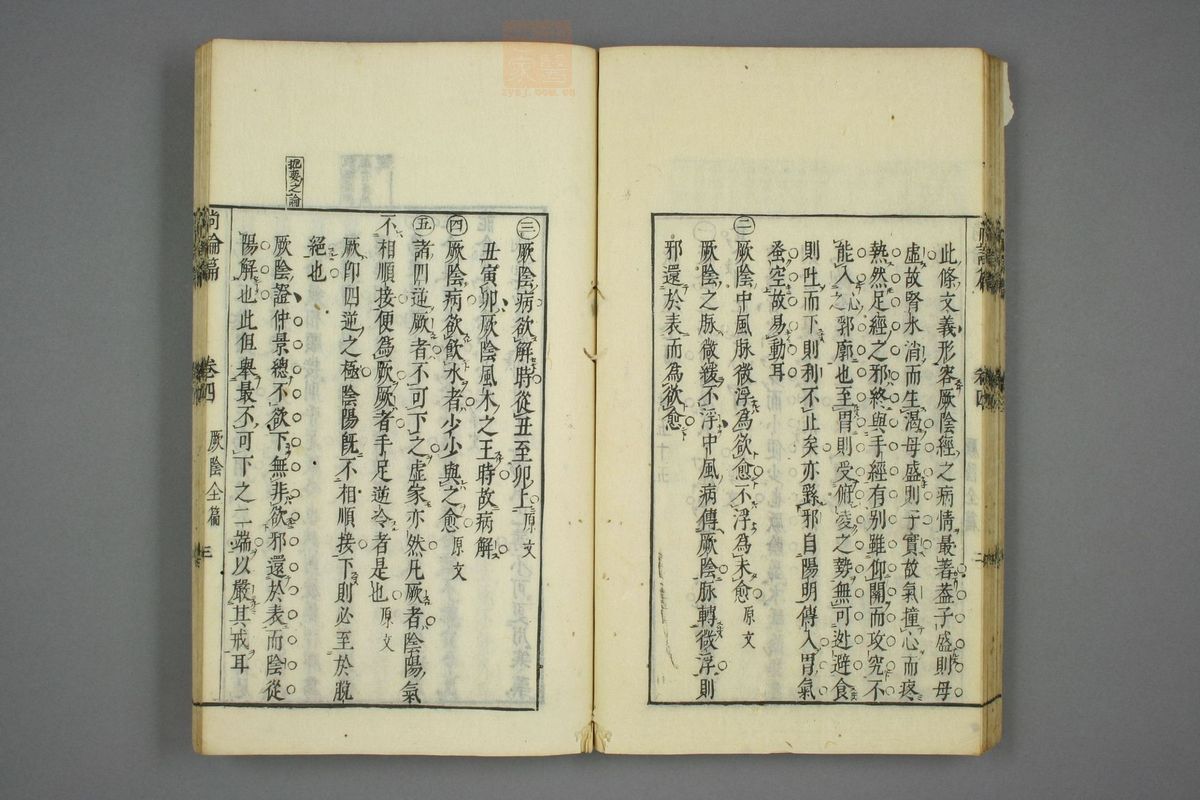 此條文義形容厥陰經之病情最著蓋子盛則母
虛故腎水消而生渴母盛則子實故氣撞心而疼
熱然足經之邪終與手經有別雖仰關而攻究不
能入心之郛廓也至胃則受俯凌之勢無可逃避食
則吐而下則利不止矣亦繇邪自陽明傳入胃氣
蚤空故易動耳
㊁厥陰中風脉微浮為欲愈不浮為未愈 原文
厥陰之脉微緩不浮中風病傳厥陰脉轉微浮則
邪還於表而為欲愈
㊂厥陰病欲解時從丑至卯上 原文
丑寅卯厥陰風木之王時故病解
㊃厥陰病欲飲水者少少與之愈 原文
㊄諸四逆厥者不可下之虛家亦然凡厥者陰陽氣
不相順接便為厥厥者手足逆冷者是也 原文
厥卽四逆之極陰陽旣不相順接下則必至於脫
絕也
厥陰證仲景總不欲下無非欲邪還於表而陰從
陽解也此但舉最不可下之二端以嚴其戒耳
扼要之論
尚論篇 卷四 厥陰全篇 三